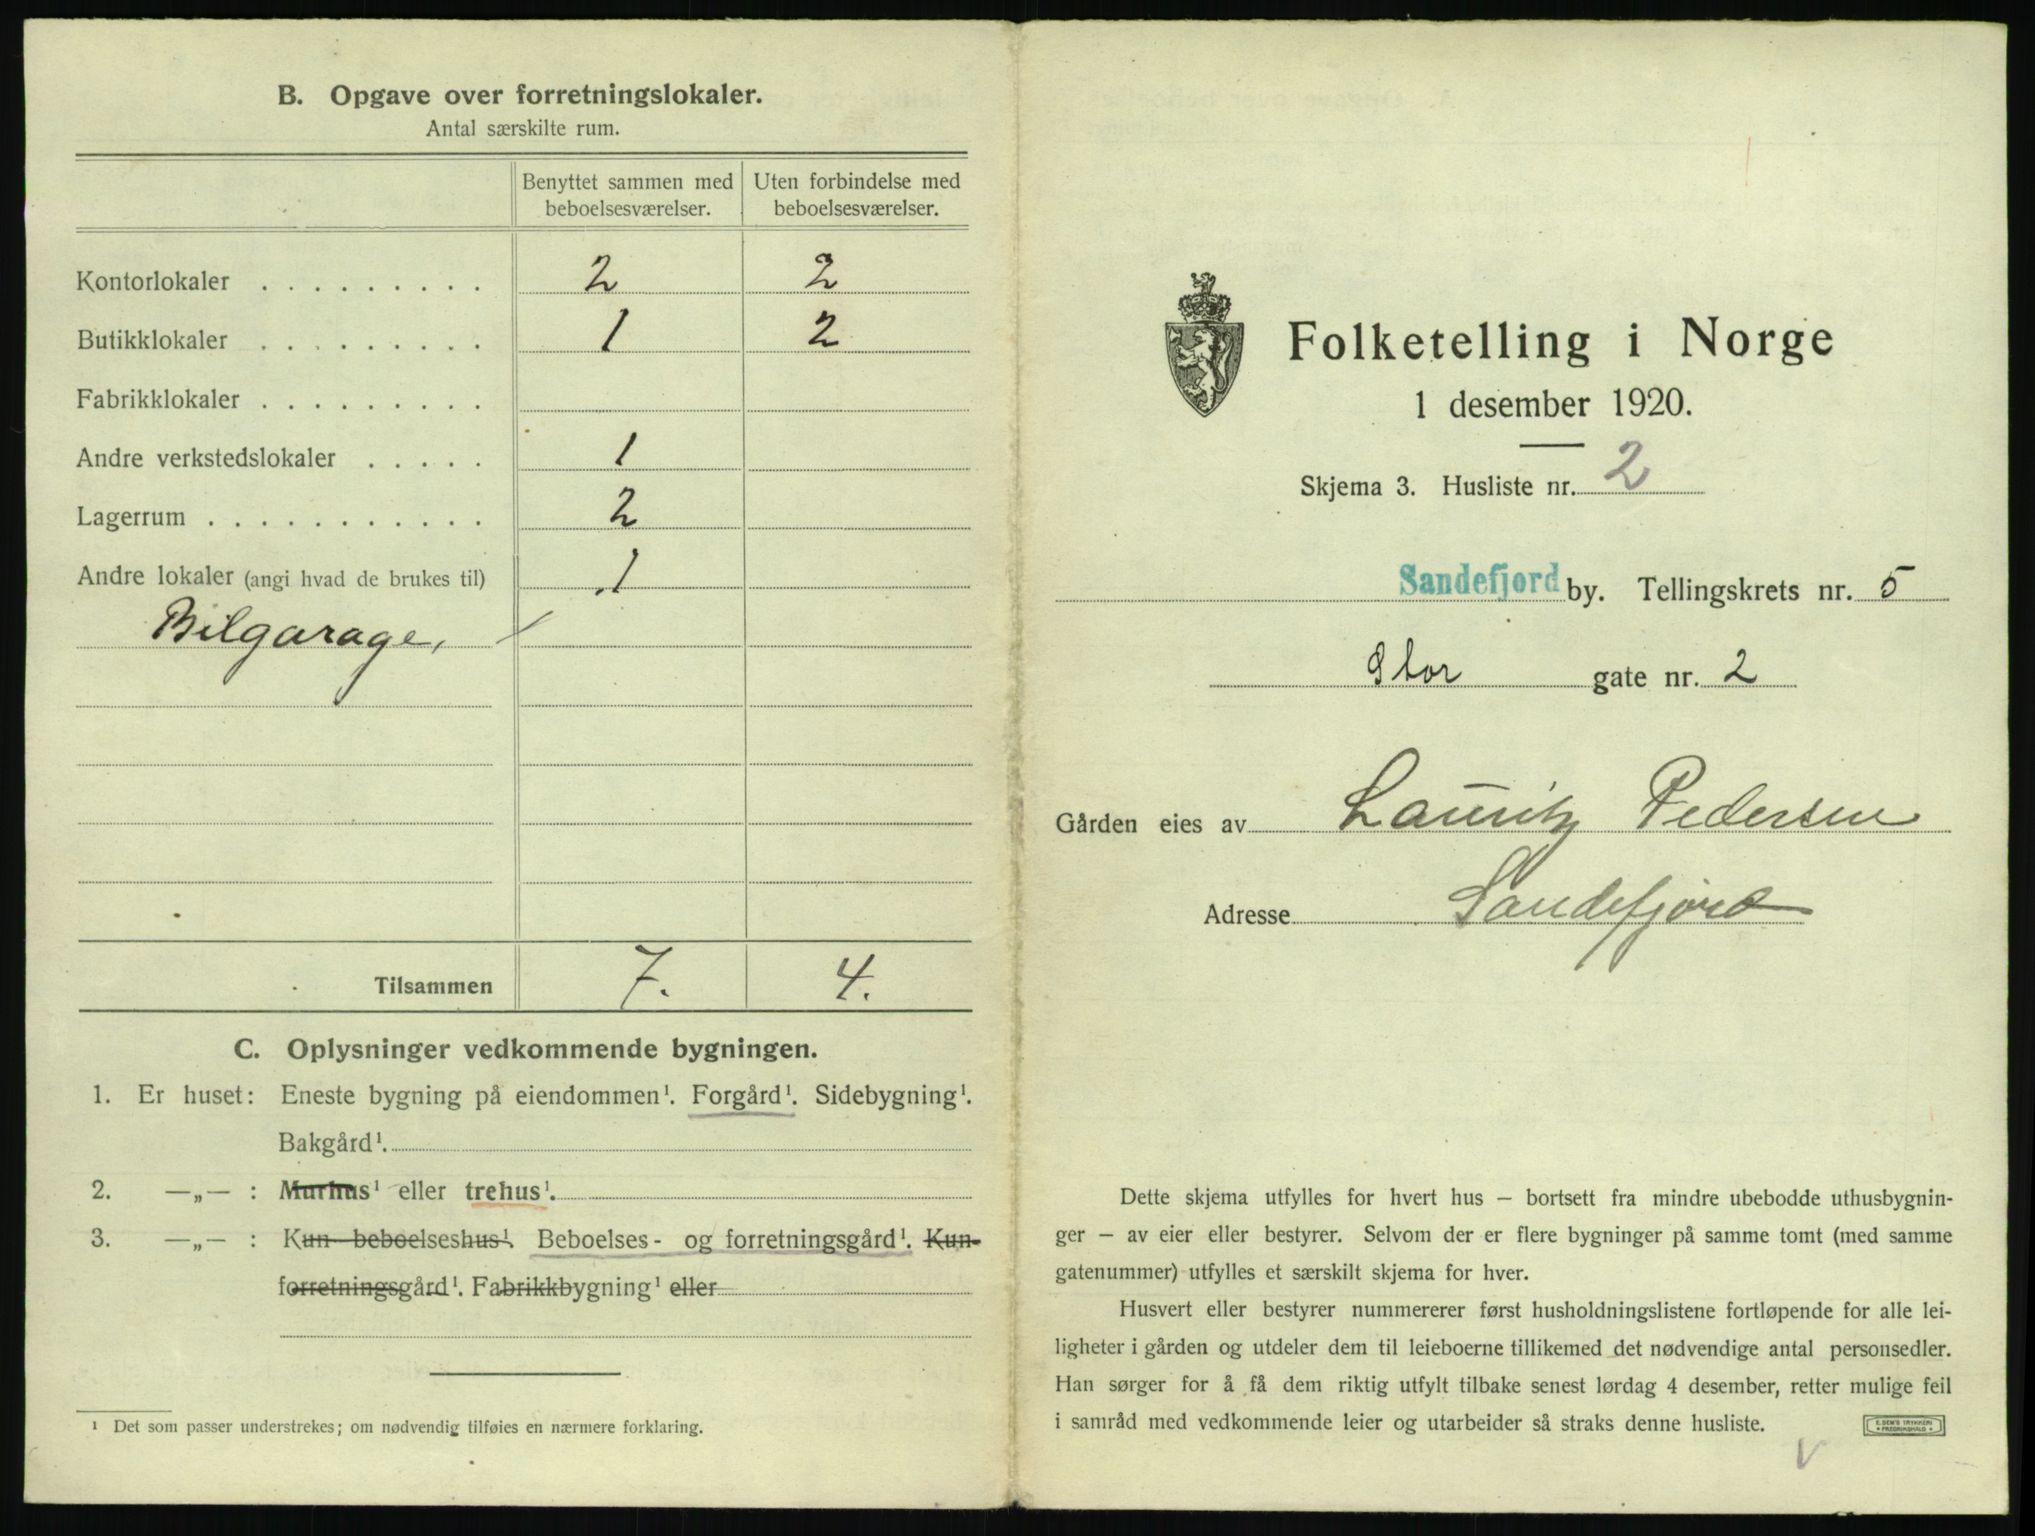 B. Opgave over forretningslokaler.
Antal særskilte rum.
Benyttet sammen med beboelsesværelser.
Uten forbindelse med beboelsesværelser.
Kontorlokaler . . . . . . . . . 2 2
Butikklokaler . . . . . . . . . 1 2
Fabrikklokaler . . . . . . . . .
Andre verkstedslokaler . . . . . 1
Lagerrum . . . . . . . . . . . 2
Andre lokaler (angi hvad de brukes til) 1
Bilgarage,
Tilsammen 7. 4.
C. Oplysninger vedkommende bygningen.
1. Er huset: Eneste bygning på eiendommen¹. Forgård¹. Sidebygning¹.
Bakgård¹.
2. —„— : Murhus¹ eller trehus¹.
3. —„— : Kun beboelseshus¹. Beboelses- og forretningsgård¹. Kun
forretningsgård¹. Fabrikkbygning¹ eller
¹ Det som passer understrekes; om nødvendig tilføies en nærmere forklaring.
Folketelling i Norge
1 desember 1920.
Skjema 3. Husliste nr. 2
Sandefjord by. Tellingskrets nr. 5
Stor gate nr. 2
Gården eies av Lauritz Pedersen
Adresse Sandefjord
Dette skjema utfylles for hvert hus — bortsett fra mindre ubebodde uthusbygnin-
ger — av eier eller bestyrer. Selvom der er flere bygninger på samme tomt (med samme
gatenummer) utfylles et særskilt skjema for hver.
Husvert eller bestyrer nummererer først husholdningslistene fortløpende for alle lei-
ligheter i gården og utdeler dem til leieboerne tillikemed det nødvendige antal personsedler.
Han sørger for å få dem riktig utfylt tilbake senest lørdag 4 desember, retter mulige feil
i samråd med vedkommende leier og utarbeider så straks denne husliste.
E. SEM'S TRYKKERI
FREDRIKSHALD